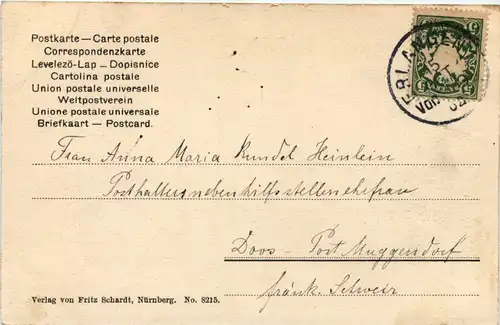 Postkarte — Carte postale
Correspondenzkarte
Levelező-Lap — Dopisnice
Cartolina postale
Union postale universelle
Weltpostverein
Unione postale universale
Briefkaart — Postcard.
ERLANGEN
5
Frau Anna Maria Kundel Heinlein
Posthaltersnebenhilfsstellenehefrau
Doos - Post Muggendorf
fränk. Schweiz
Verlag von Fritz Schardt, Nürnberg. No. 8215.